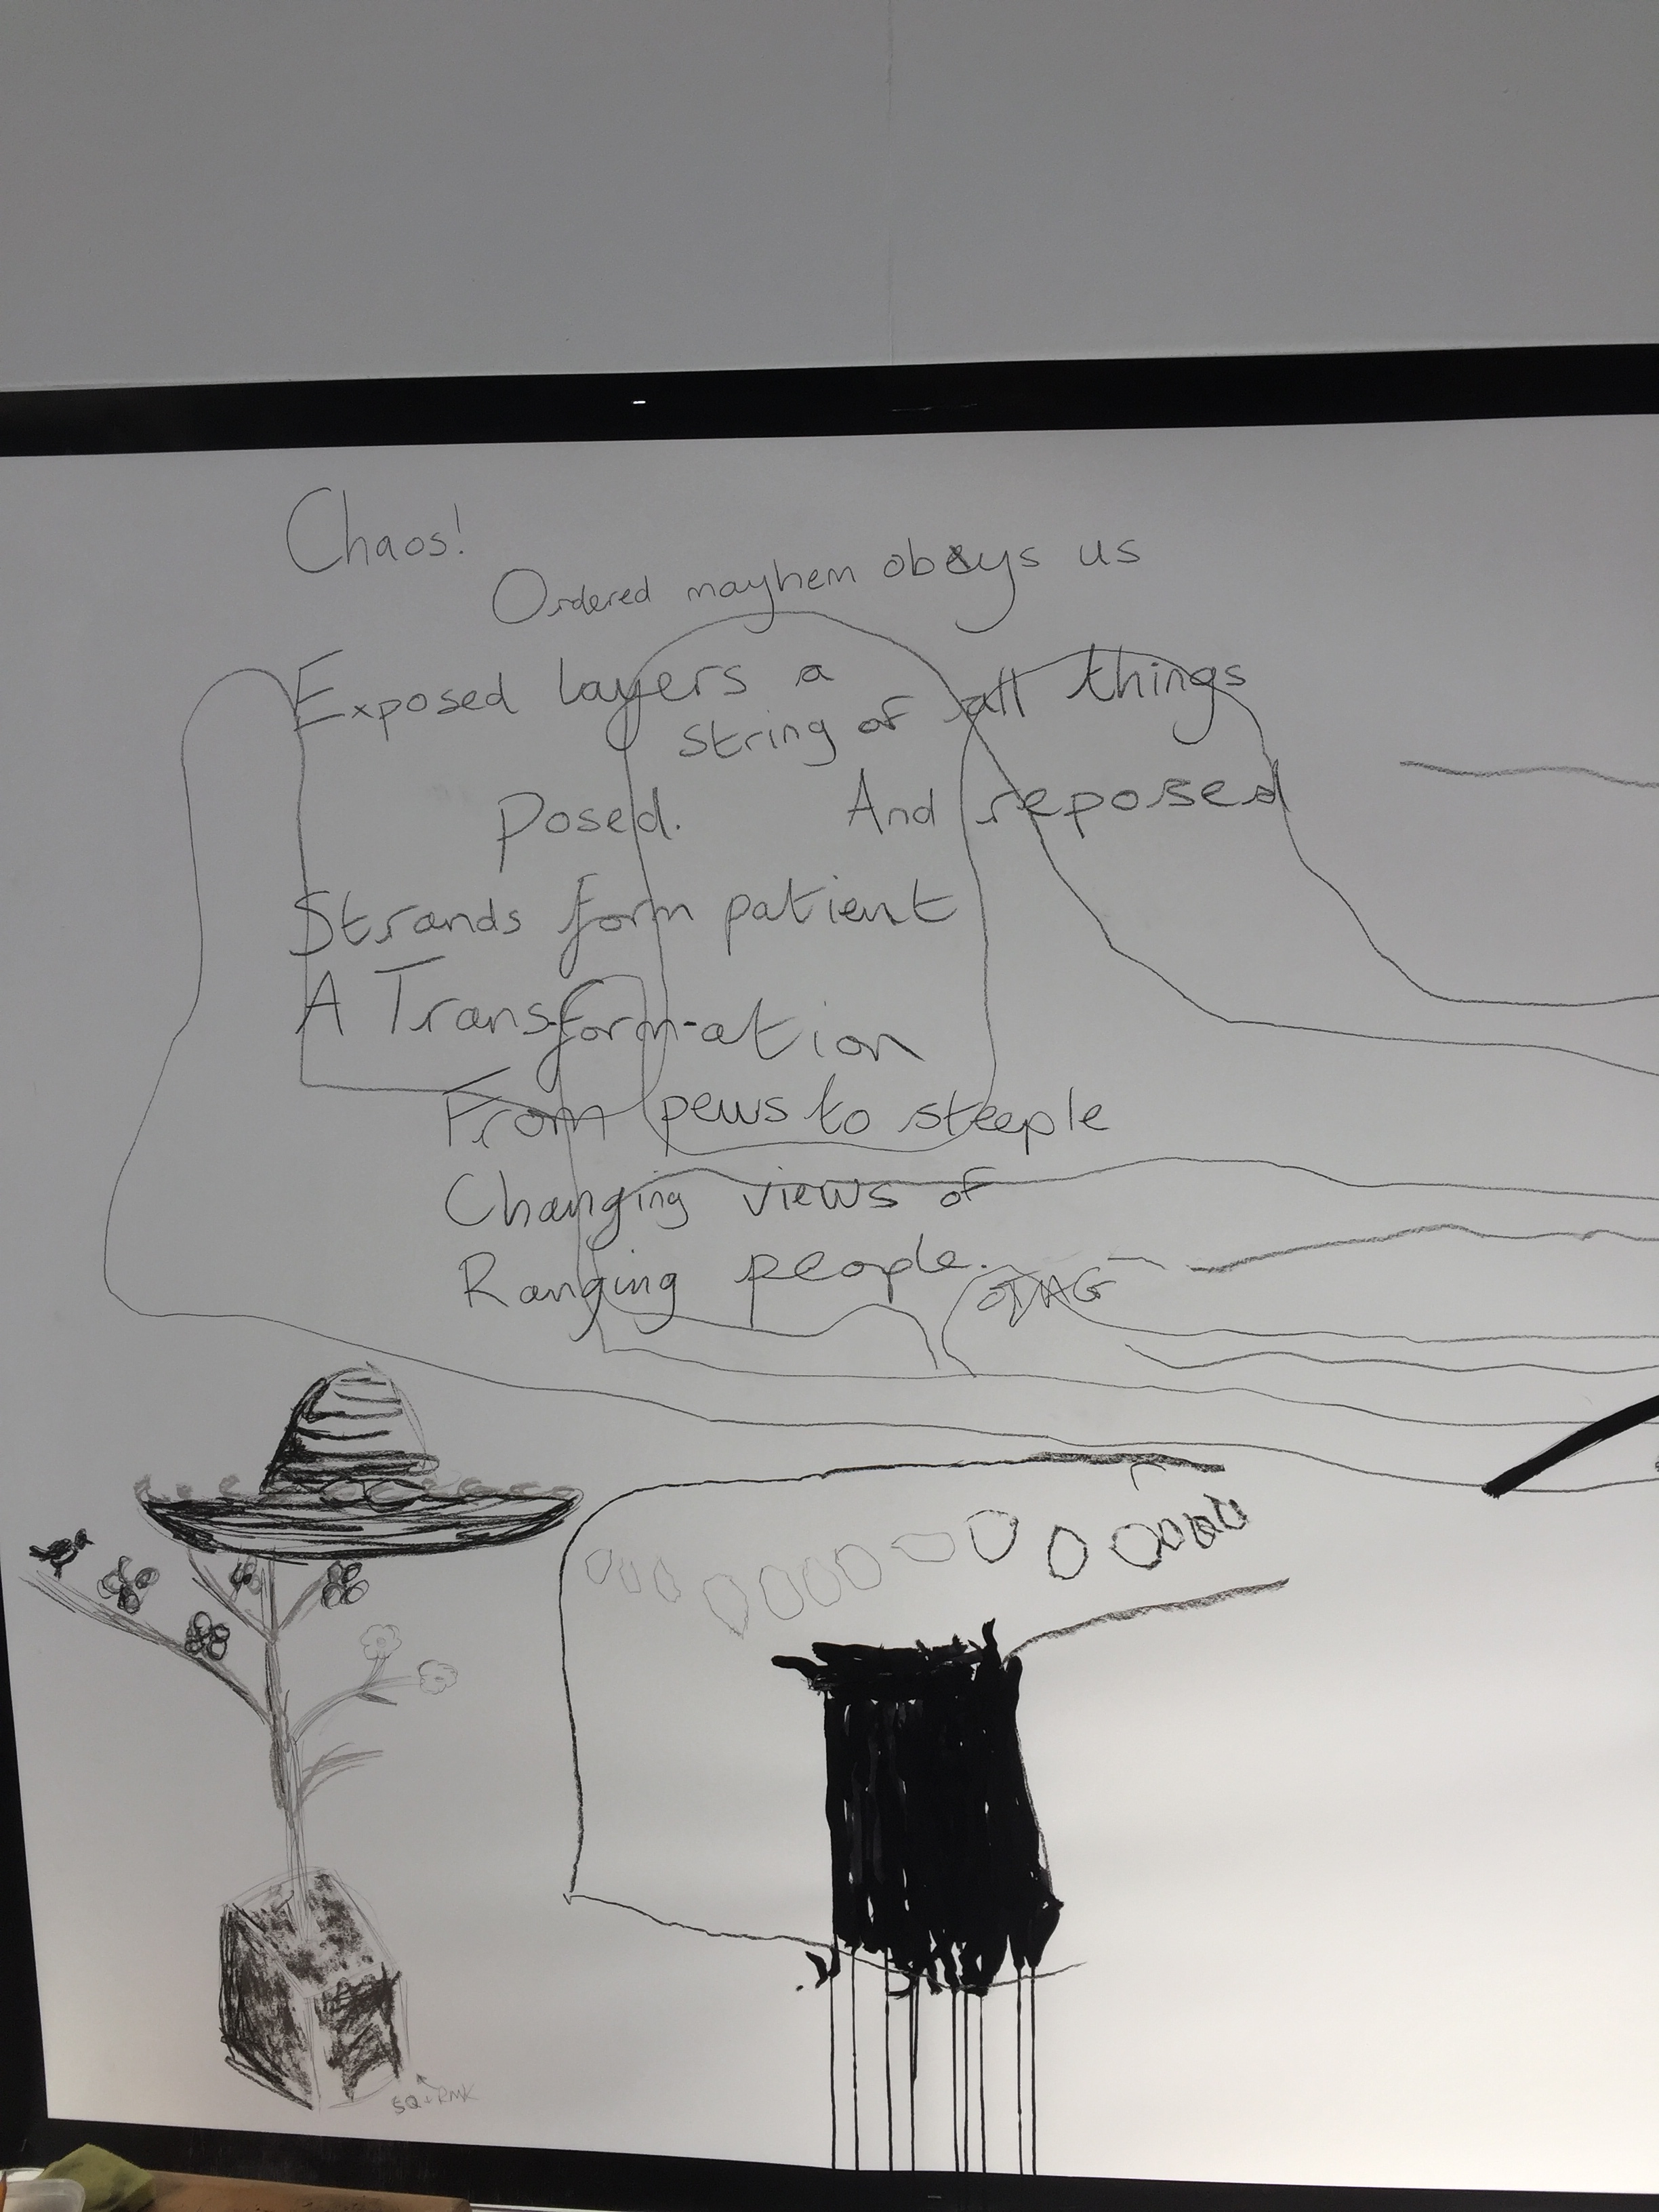 Chaos!
Ordered mayhem obeys us
Exposed layers a
string of all things
Posed. And reposed
Strands form patient
A Trans-form-ation
From pews to steeple
Changing views of
Ranging people.